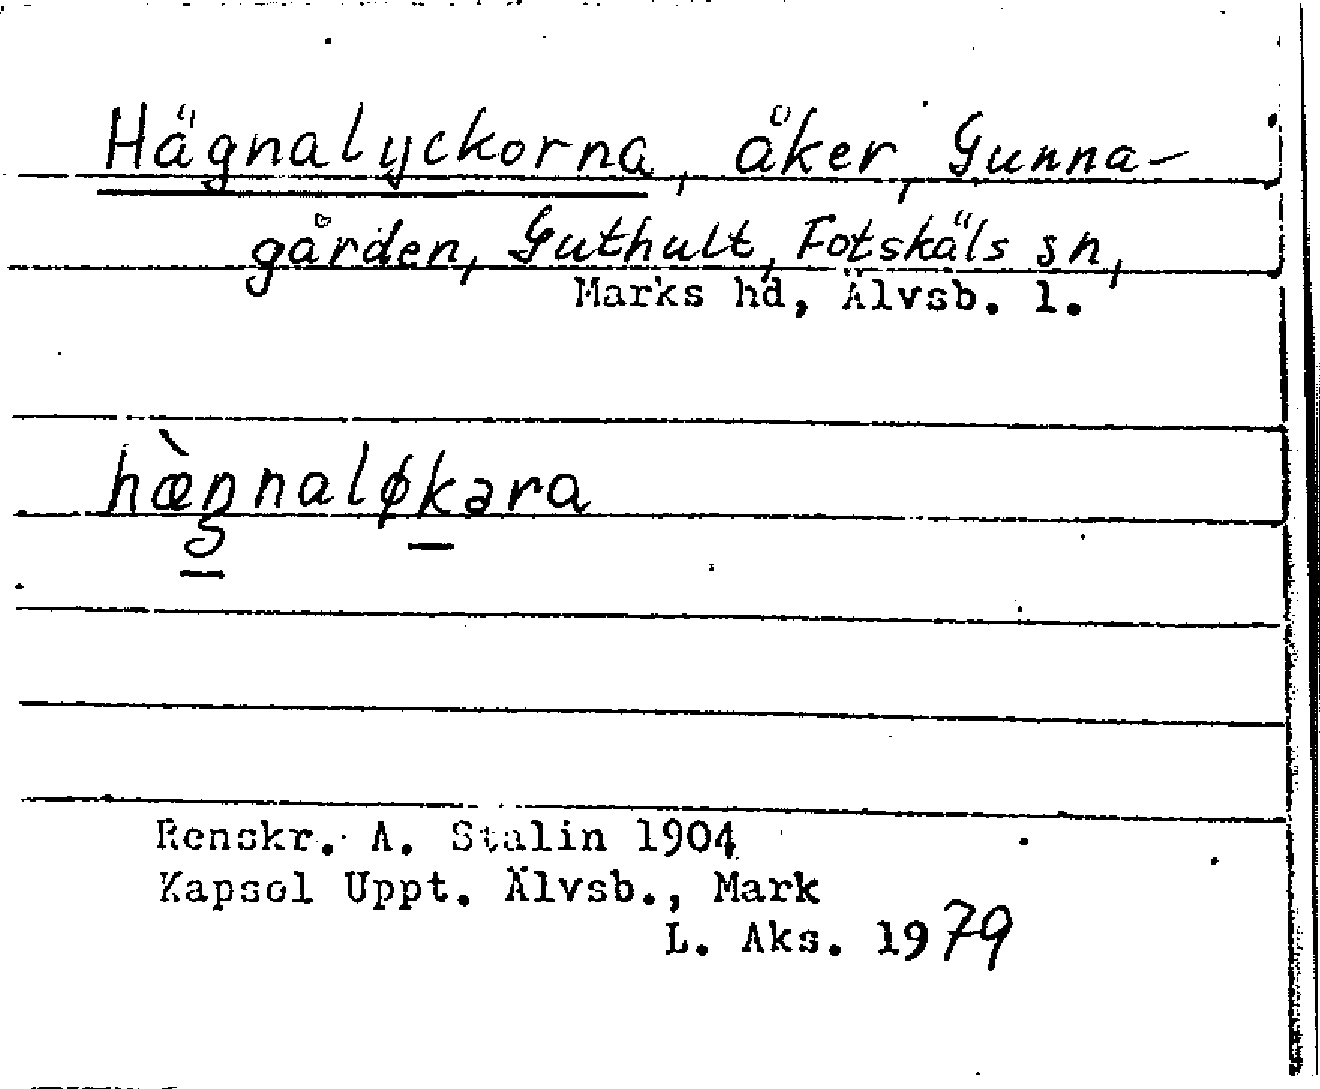 Hägnalyckorna, åker, Gunna-
gården, Guthult, Fotskäls sn,
Marks hd, Älvsb. l.
hæ̀ŋnaløkəra
Renskr. A. Stalin 1904
Kapsel Uppt. Älvsb., Mark
L. Aks. 1979